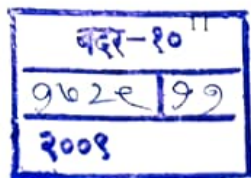 बदर-१०
१७२९ ११
२००९